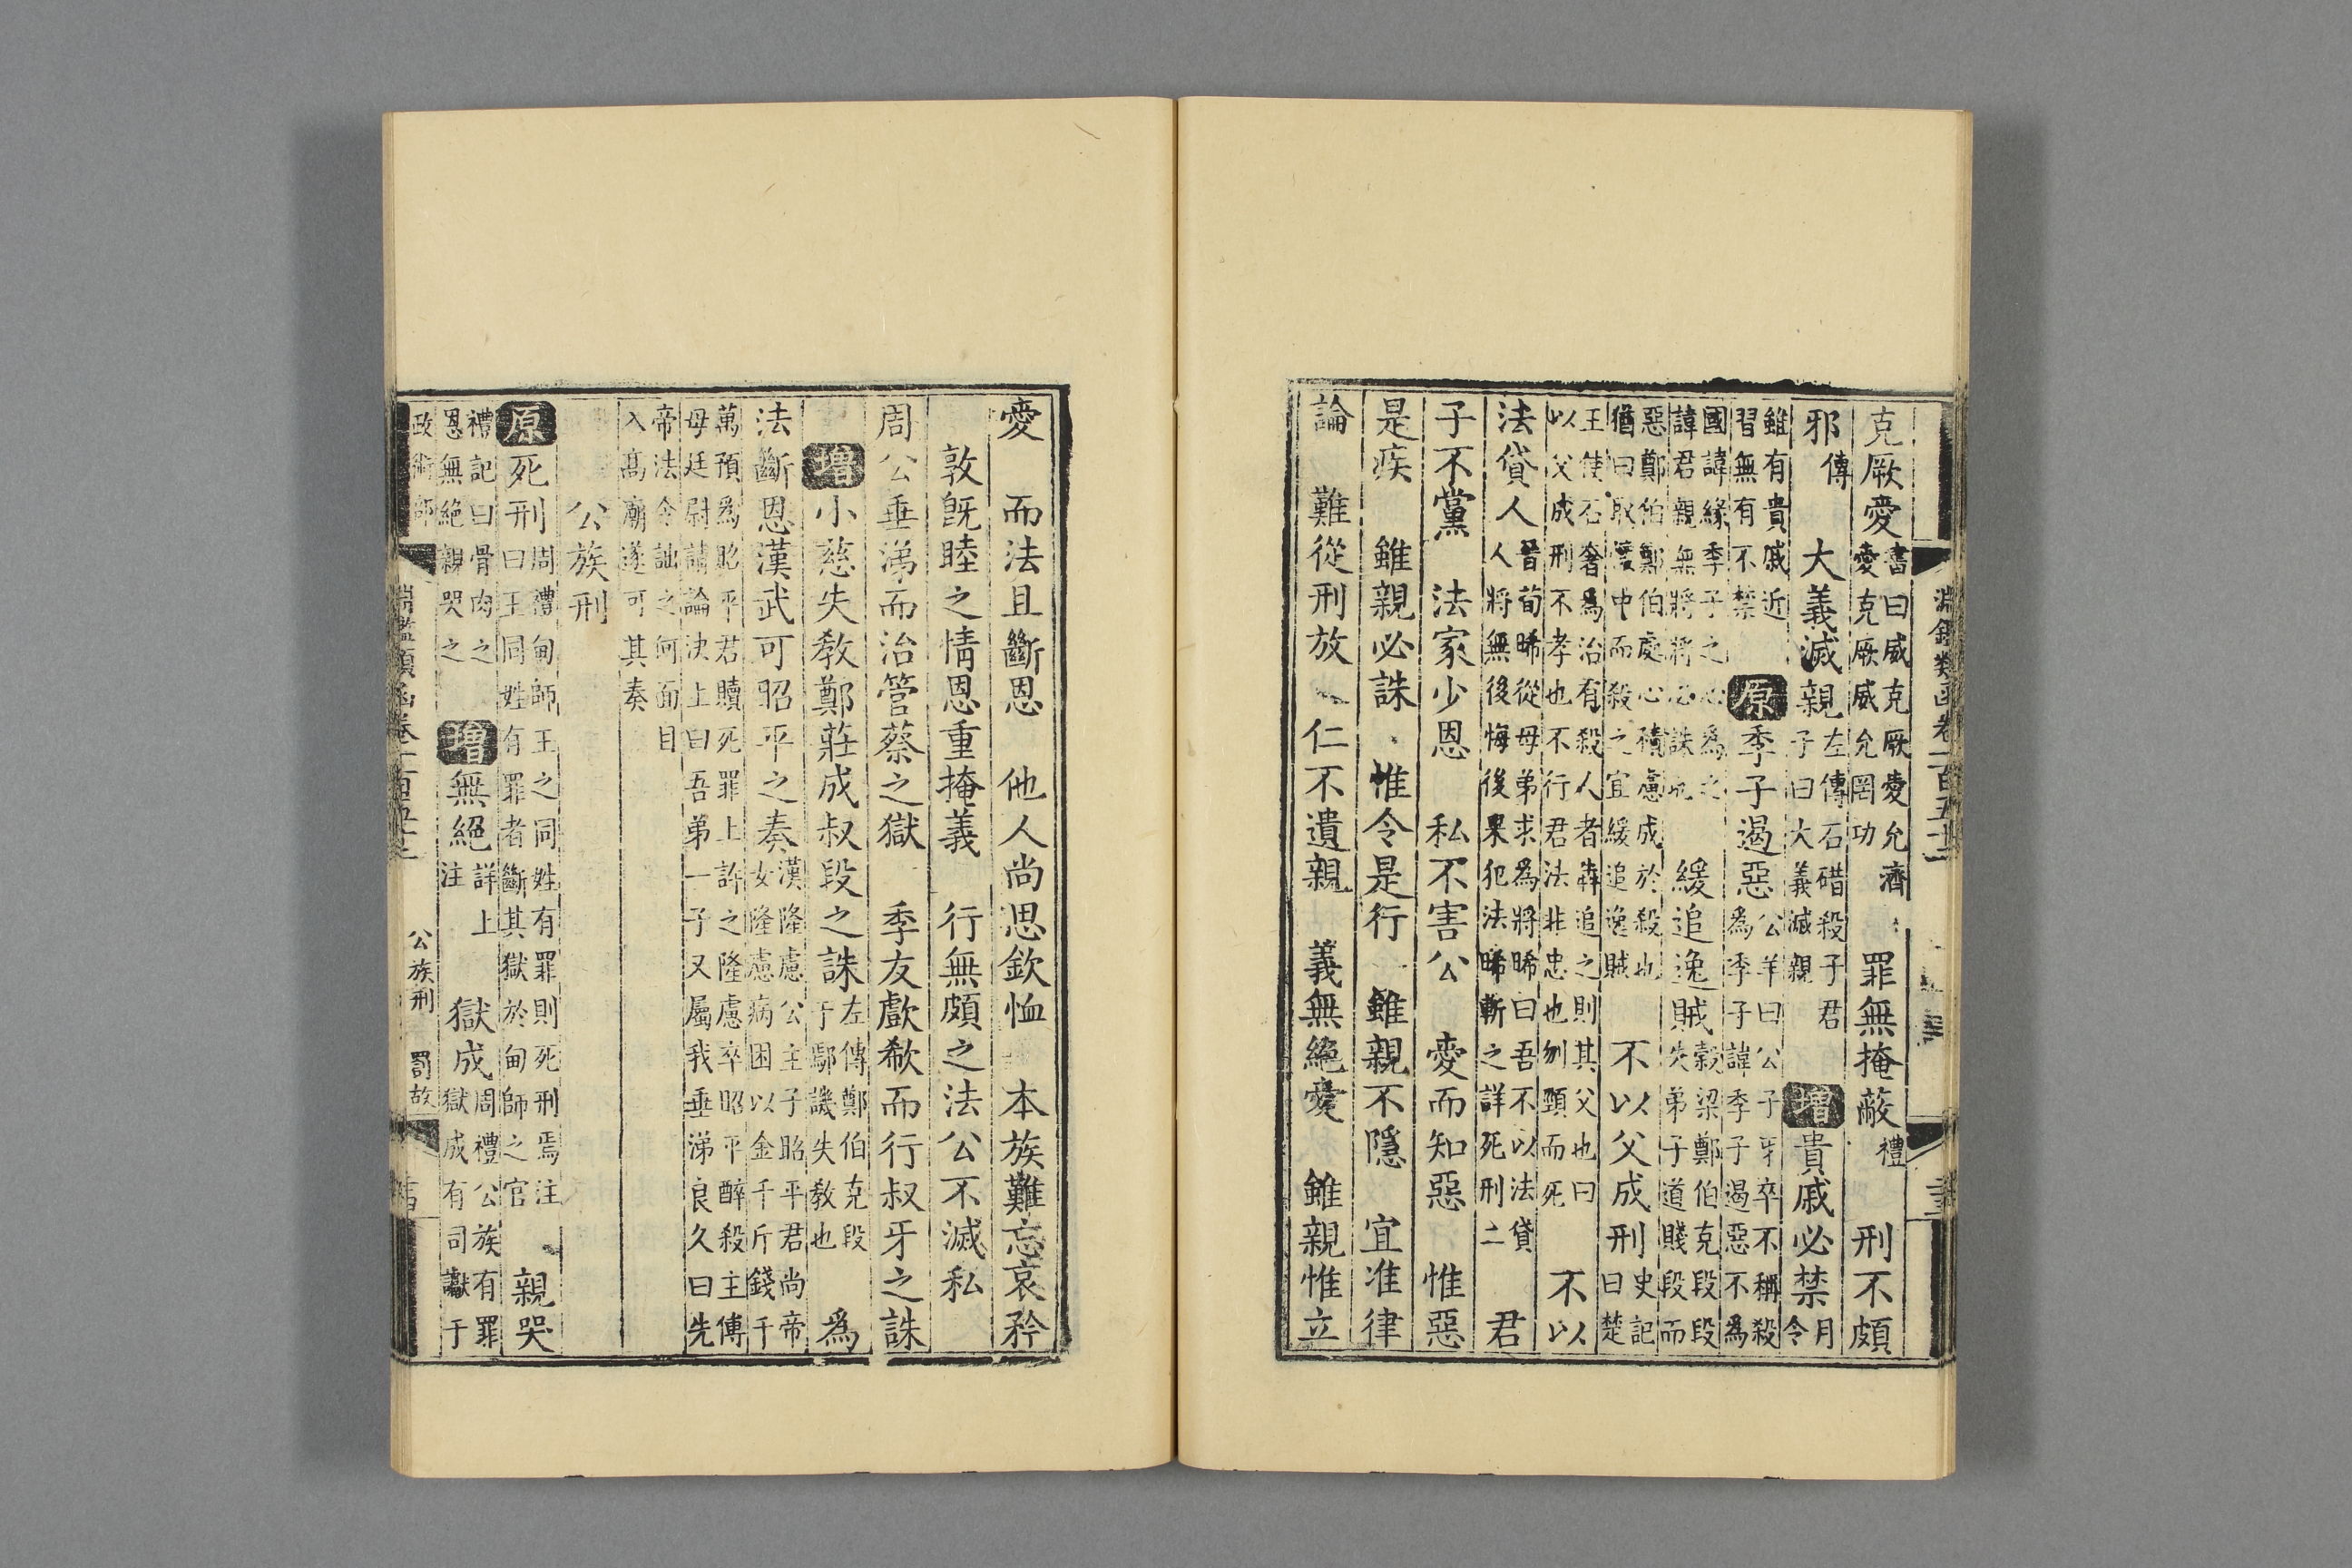 淵鑑類函卷一百五十二
克厥愛 書曰威克厥愛允濟愛克厥威允罔功 罪無掩蔽 禮 刑不頗
邪 傳 大義滅親 左傳石碏殺子君子曰大義滅親 增 貴戚必禁 月令
雖有貴戚近習無有不禁 原 季子遏惡 公羊曰公子牙卒不稱殺為季子諱季子遏惡不為
國諱緣季子之心為之諱君親無將將必誅也 緩追逸賊 穀梁鄭伯克段段失弟子道賤段而
惡鄭伯鄭伯處心積慮成於殺也猶曰取之其母之懷中而殺之宜緩追逸賊 不以父成刑 史記曰楚
王使石奢為治有殺人者犇追之則其父也曰以父成刑不孝也不行君法非忠也刎頸而死 不以
法貸人 晉荀晞從母弟求為將晞曰吾不以法貸人人將無後悔後果犯法晞斬之詳死刑二 君
子不黨 法家少恩 私不害公 愛而知惡 惟惡
是疾 雖親必誅 惟令是行 雖親不隱 宜准律
論 難從刑放 仁不遺親 義無絶愛 雖親惟立
愛 而法且斷恩 他人尚思欽恤 本族難忘哀矜
敦旣睦之情恩重掩義 行無頗之法公不滅私
周公垂涕而治管蔡之獄 季友歔欷而行叔牙之誅
增 小慈失敎鄭莊成叔段之誅 左傳鄭伯克段于鄢譏失敎也 為
法斷恩漢武可昭平之奏 漢隆慮公主子昭平君尚帝女隆慮病困以金千斤錢千
萬預為昭平君贖死罪上許之隆慮卒昭平醉殺主傅母廷尉請論決上曰吾弟一子又屬我垂涕良久曰先
帝法令詘之何面目入髙廟遂可其奏
公族刑
原 死刑 周禮甸師王之同姓有罪則死刑焉注曰王同姓有罪者斷其獄於甸師之官 親哭
禮記曰骨肉之恩無絶親哭之 增 無絕 詳上注 獄成 周禮公族有罪獄成有司讞于
淵鑑類函卷一百五十二 公族刑 罰故